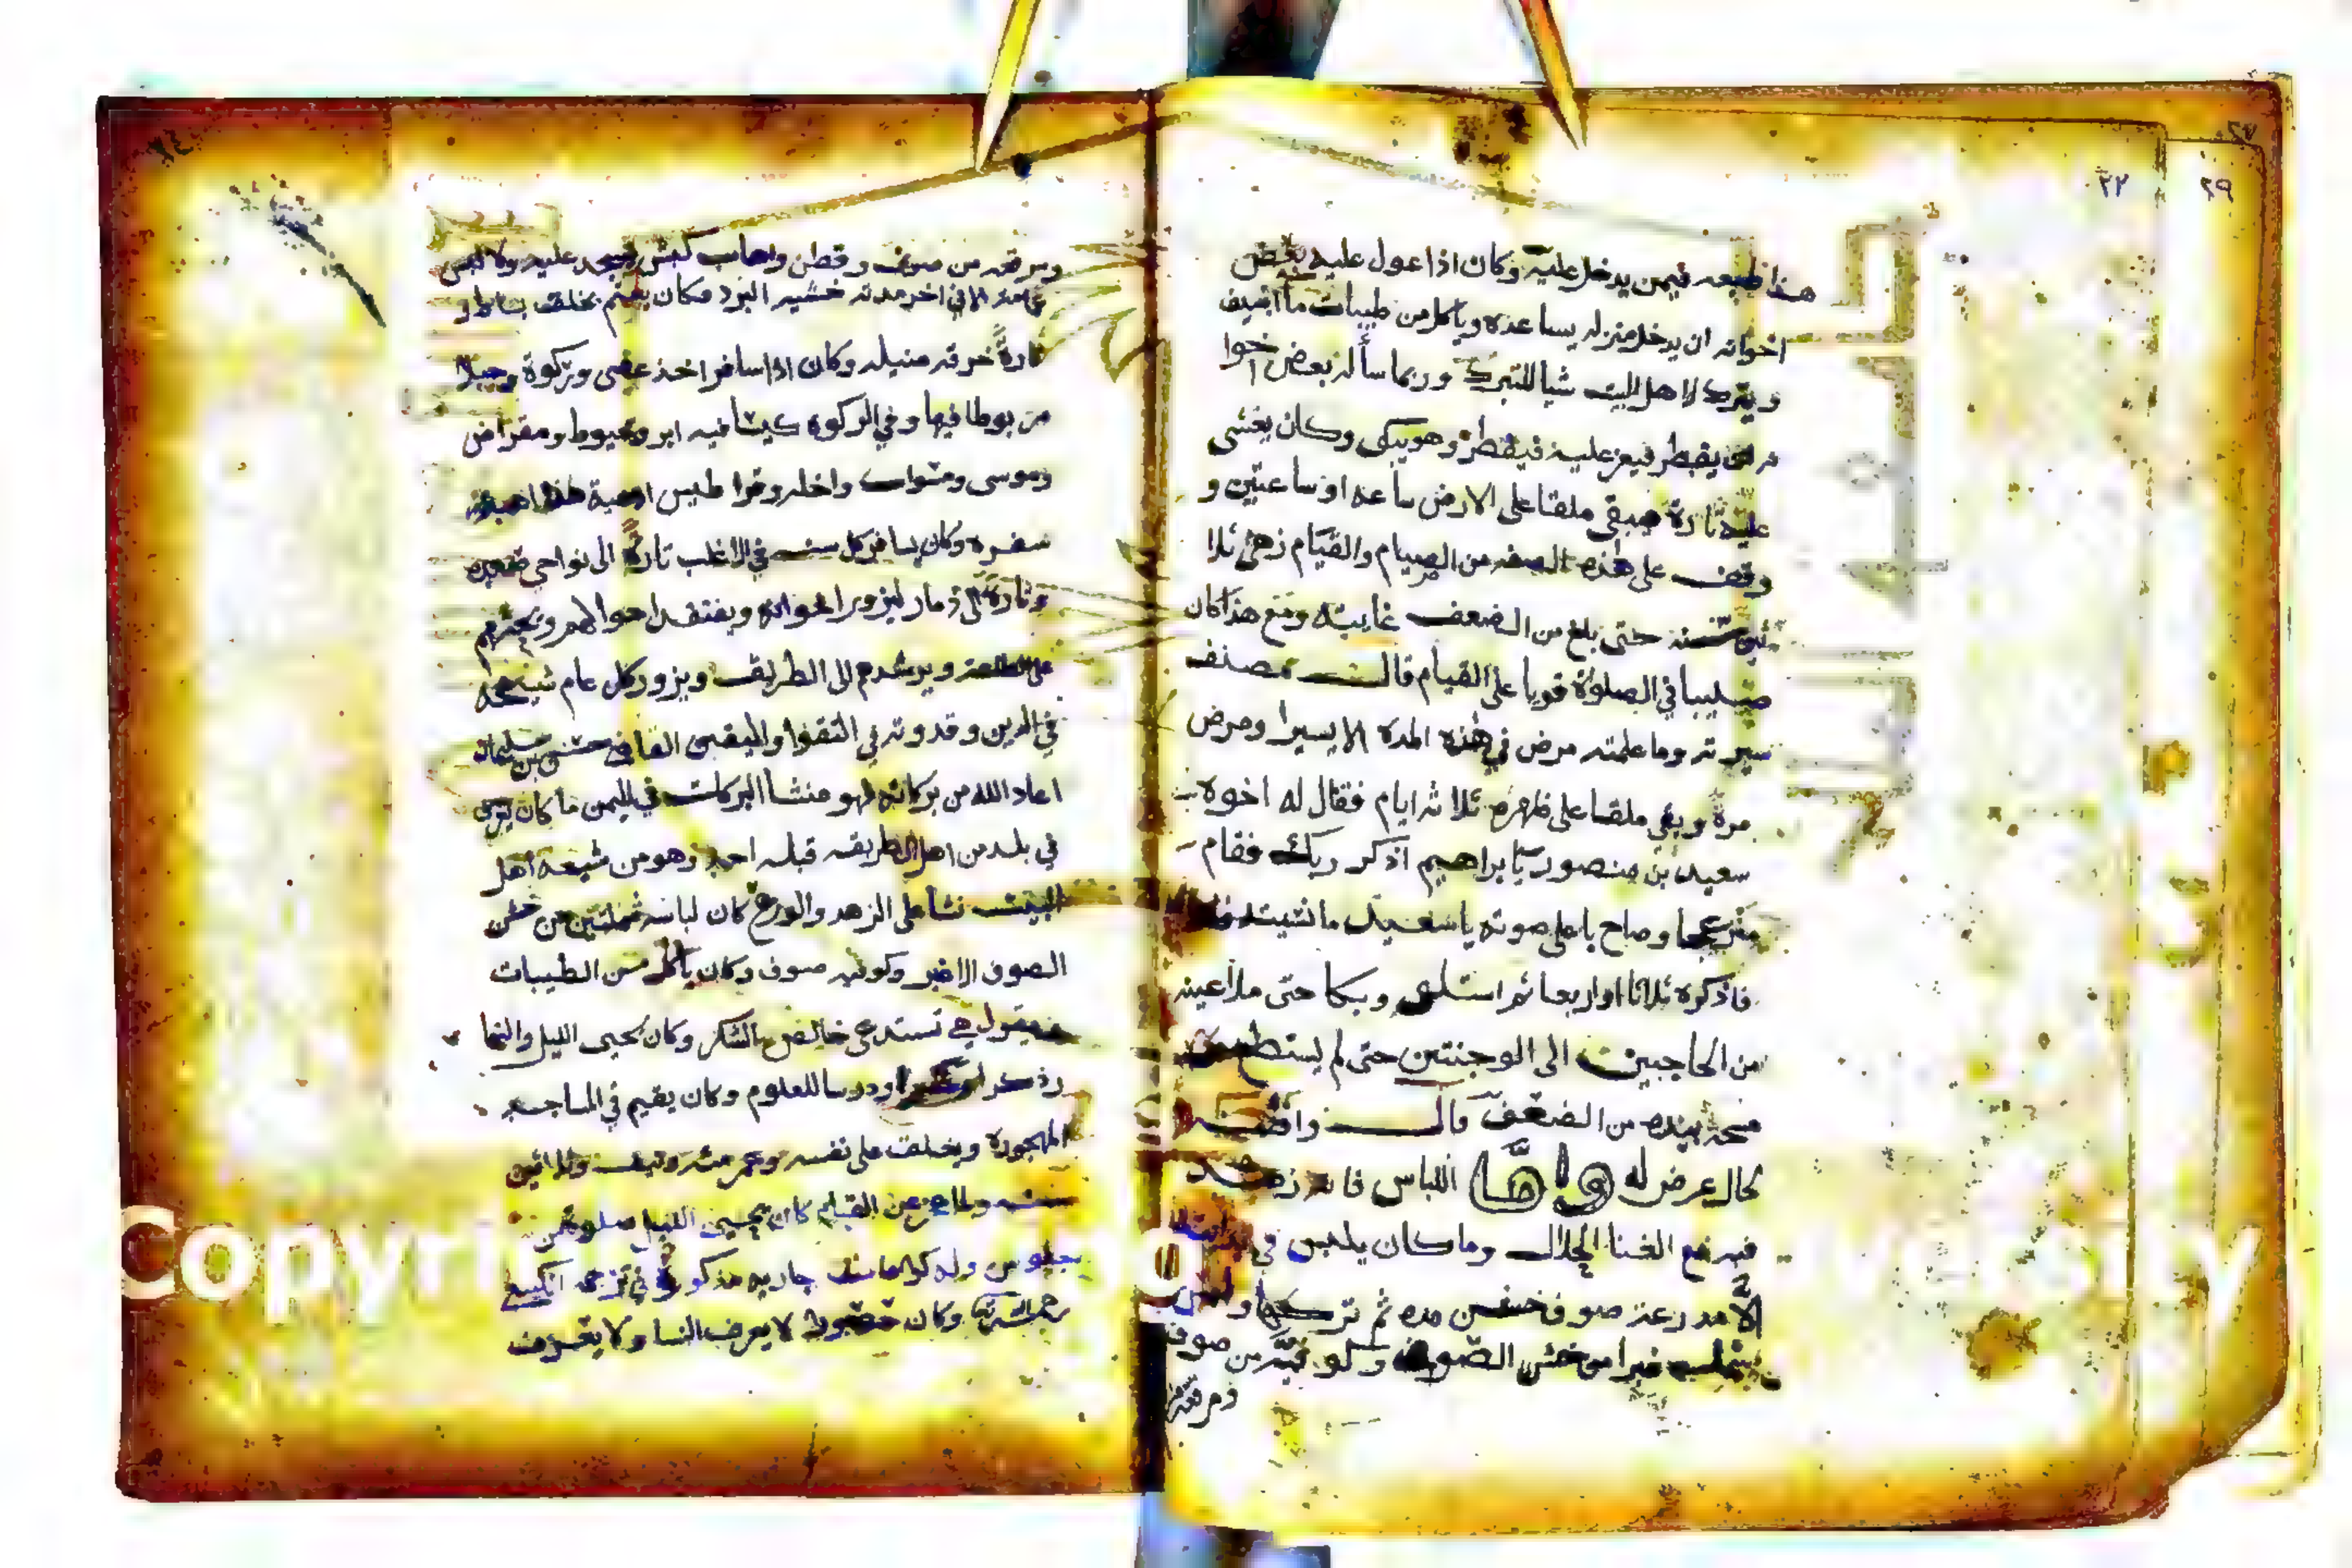 ٢٩
٢٢
هذا طبعه فيمن يدخل عليه وكان اذا عول عليه بعض
اخوانه ان يدخل منزله يساعده وياكل من طيبات ما اضيف
ويترك لاهل البيت شيا للتبرك وربما سأله بعض اخوا
نه ان يفطر فيعز عليه فيفطر وهو يبكي وكان يغشى
عليه تارة فيبقى ملقا على الارض ساعه او ساعتين و
وقف على هذه الصفه من الصيام والقيام زهى ثلا
ثين سنه حتى بلغ من الضعف غايته ومع هذا كان
صليبا في الصلوة قويا على القيام قالـــت مصنف
سيرته وما علمته مرض في هذه المدة الا يسيرا ومرض
مرة وبقي ملقا على ظهره ثلاثه ايام فقال له اخوه
سعيد بن منصور يا براهيم اذكر ربك فقام
منزعجا وصاح باعلى صوته يا سعيد ما نسيته
فاذكره ثلاثا او اربعا ثم استلقى وبكا حتى ملا عينه
من الحاجبين الى الوجنتين حتى لم يستطع
مسحه بيده من الضعف قالــــ
لحال عرض له واما اللباس فانه زهد
فيه مع الغنا الحلال وما كان يلبس في
الا مدرعة صوف خشن مده ثم تركها ولبس
من خشن الصوف وكوفية من صوف
ومرقعة
ومرقعه من صوف وقطن واهاب كبش يسجد عليه ولا لبس
عمامة الا في اخر مدته خشية البرد فكان يعتم بخلق بساط و
تارةً خرقه منيله وكان اذا سافر اخذ عصى وركوة وحبلا
مربوطا فيها وفي الركوه كيسا فيه ابر وخيوط ومقراض
وموسى ومسواك واخله وقراطيس ادعية هذا اهبة
سفره وكان يسافر كل سنــه في الاغلب تارةً الى نواحي صعده
وتارة الى ذمار ليزور اخوانه ويفتقد احوالهم ويحثهم
على الطاعة ويرشدهم الى الطريق ويزور كل عام شيخه
في الدين وقدوته في التقوا واليقين القاضي حسن بن سليمان
اعاد الله من بركاته فهو منشأ البركات في اليمن ما كان يرى
في بلد من اهل الطريقه قبله احد وهو من شيعة اهل
البيت نشا على الزهد والورع كان لباسه شملتين من خشن
الصوف الاغبر وكوفيه صوف وكان ياكل من الطيبات
ويقول هي تستدعي خالص الشكر وكان يحيى الليل والنها
ر ذكرا ودرسا للعلوم وكان يقيم في المساجد
المهجورة ويخلف على نفسه وعمر مئة ونيف وثلاثين
سنــه ولما عجز عن القيام كان يحيى الليل صلوة من
جلوس وله كرامات جاريه مذكورة في ترجمة الكينعي
رحمه الله وكان حصورا لا يعرف النسا ولا يعترف